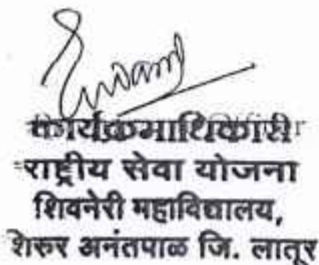 कार्यक्रमाधिकारी
राष्ट्रीय सेवा योजना
शिवनेरी महाविद्यालय,
शिरुर अनंतपाळ जि. लातूर